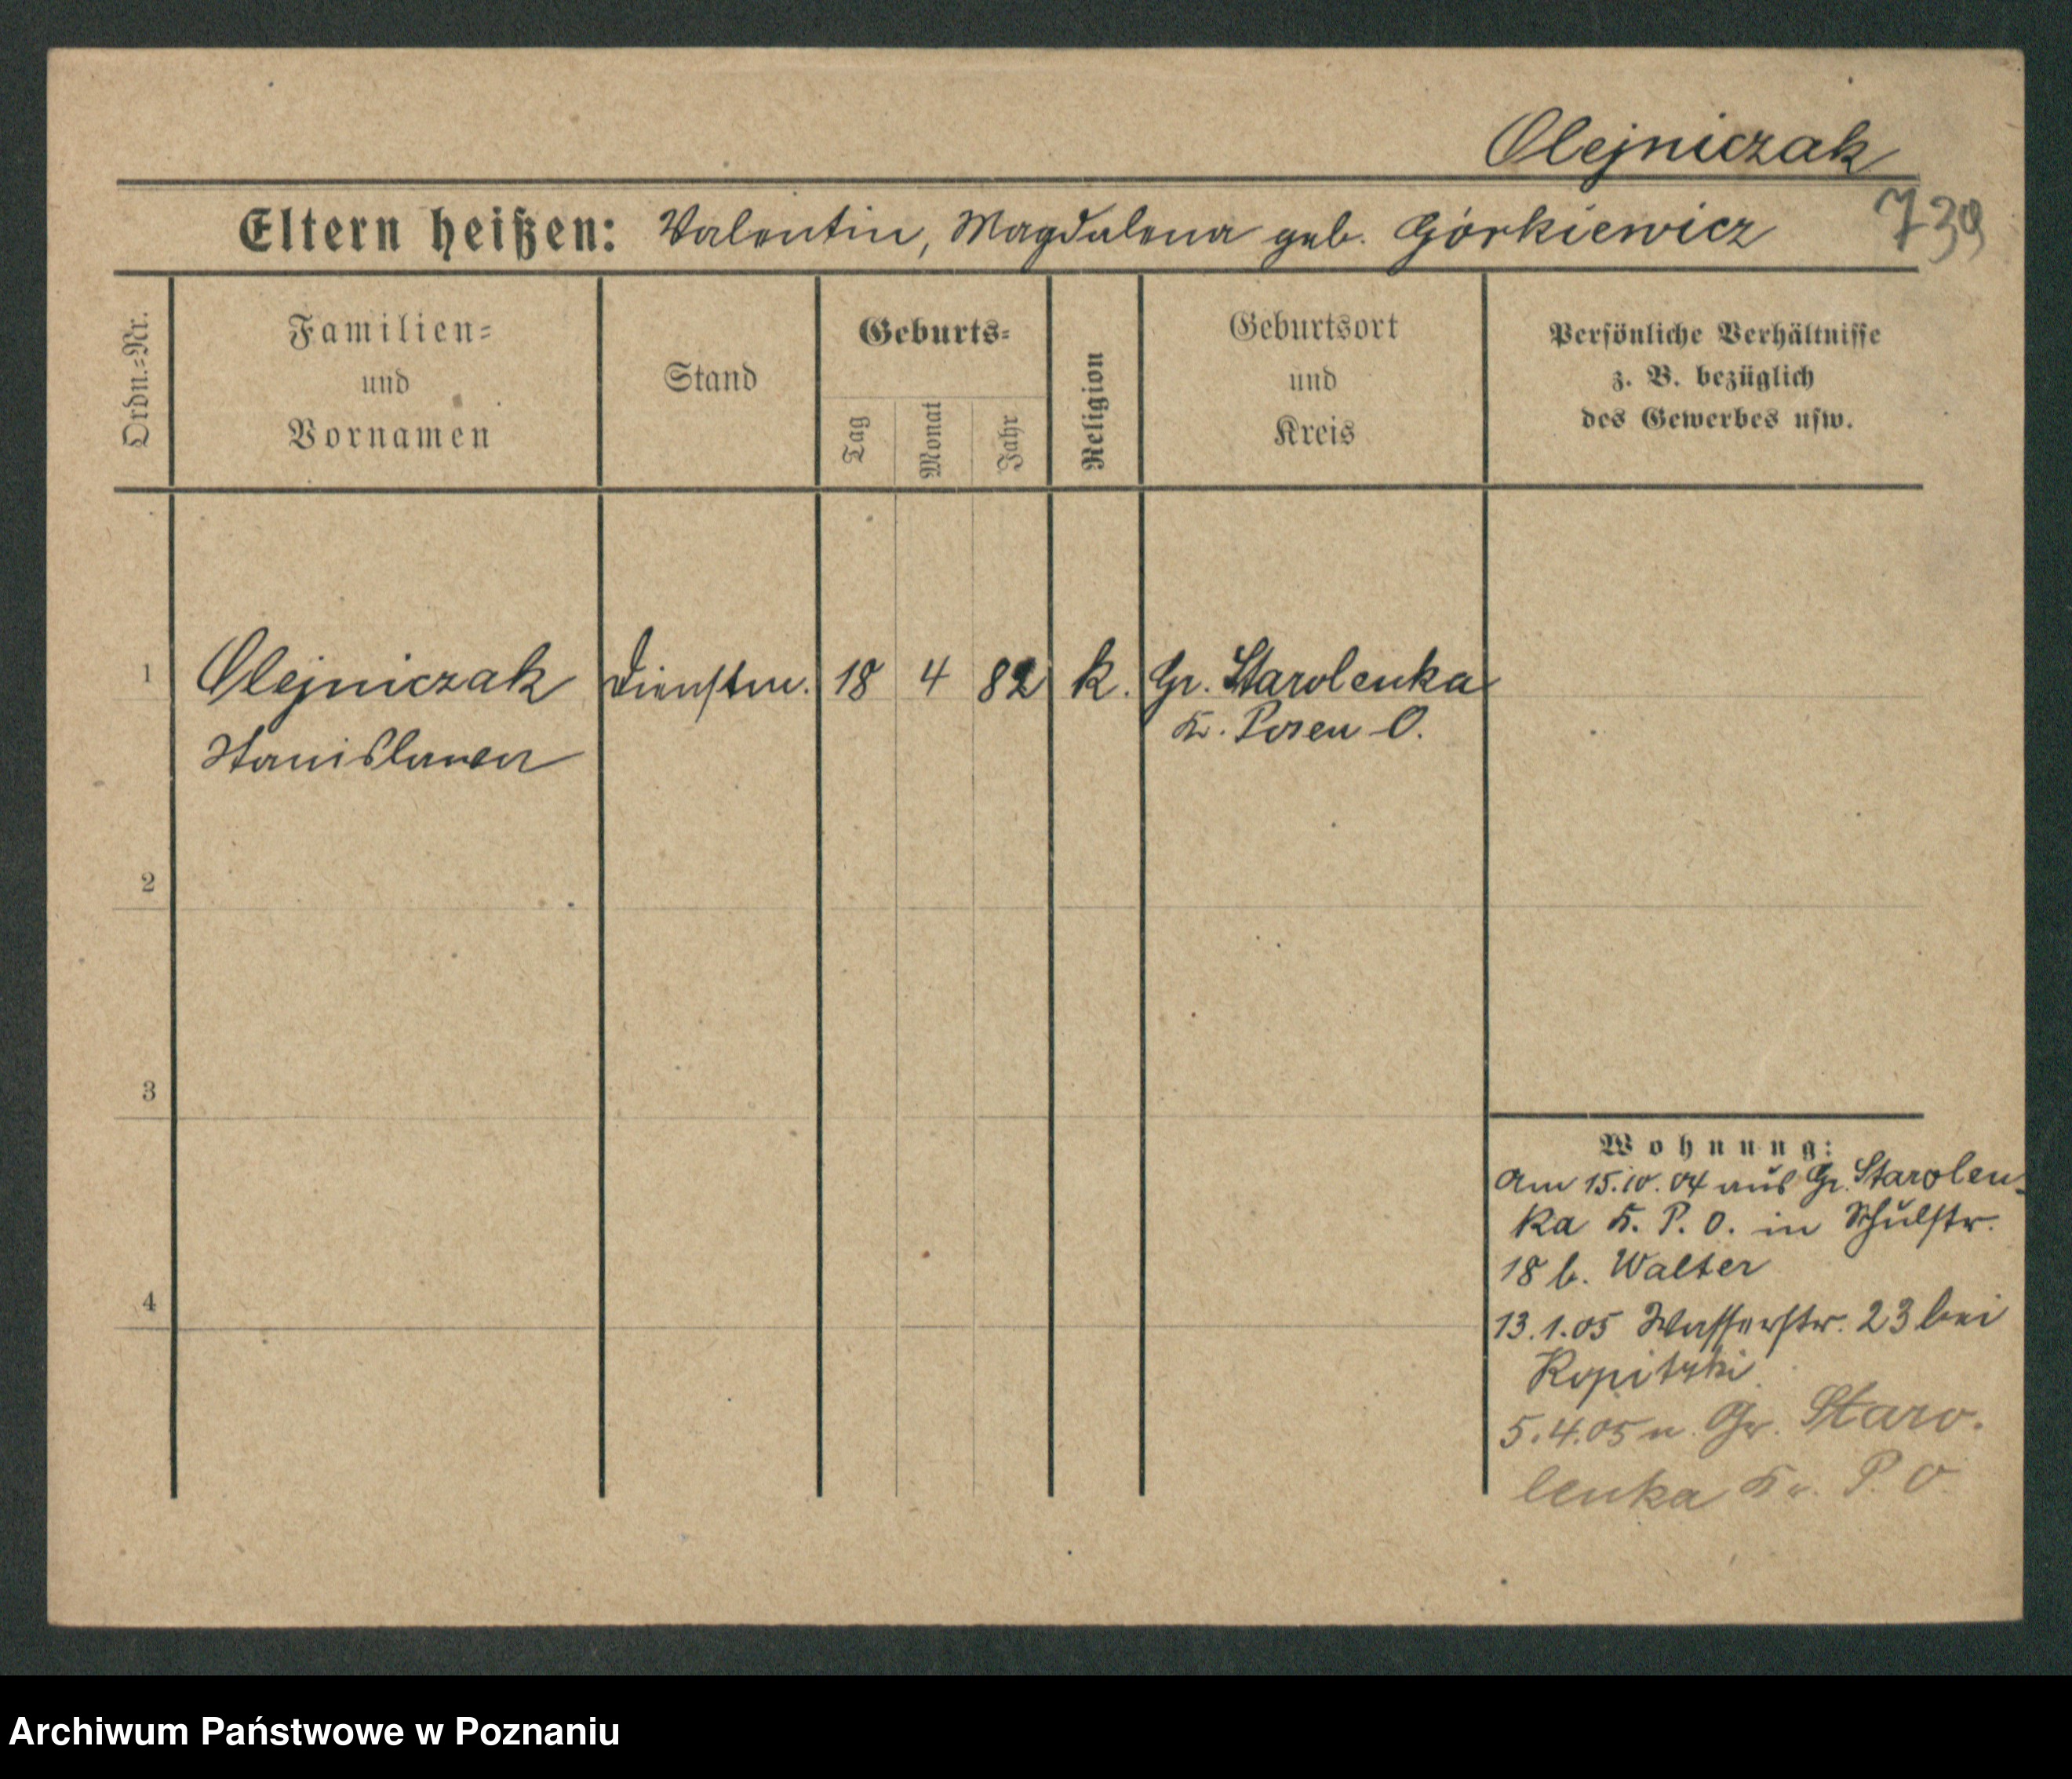 Olejniczak
Eltern heißen: Valentin, Magdalena geb. Górkiewicz
739
Ordn.=Nr.
Familien=
und
Vornamen
Stand
Geburts=
Tag
Monat
Jahr
Religion
Geburtsort
und
Kreis
Persönliche Verhältnisse
z. B. bezüglich
des Gewerbes usw.
1 Olejniczak Dienstm. 18 4 82 k. Gr. Starolenka
Stanislawa K. Posen O.
2
3
4
Wohnung:
Am 15.10.04 aus Gr. Starolen-
ka K. P. O. in Schulstr.
18 b. Walter
13.1.05 Wasserstr. 23 bei
Kopitzki
5.4.05 n. Gr. Staro-
lenka Kr. P. O.
Archiwum Państwowe w Poznaniu